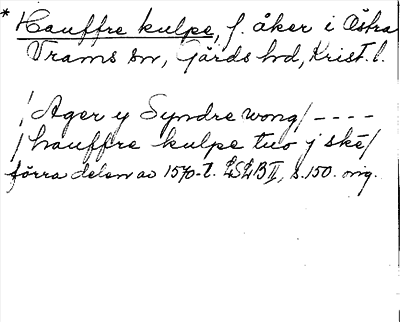 * Hauffre kulpe, f. åker i Östra
Vrams sn, Gärds hd, Krist. l.
/Ager y Syndre wong/ - - - -
/hauffre kulpe tuo j skē/
förra delen av 1570-t. LSLB II, s. 150. orig.